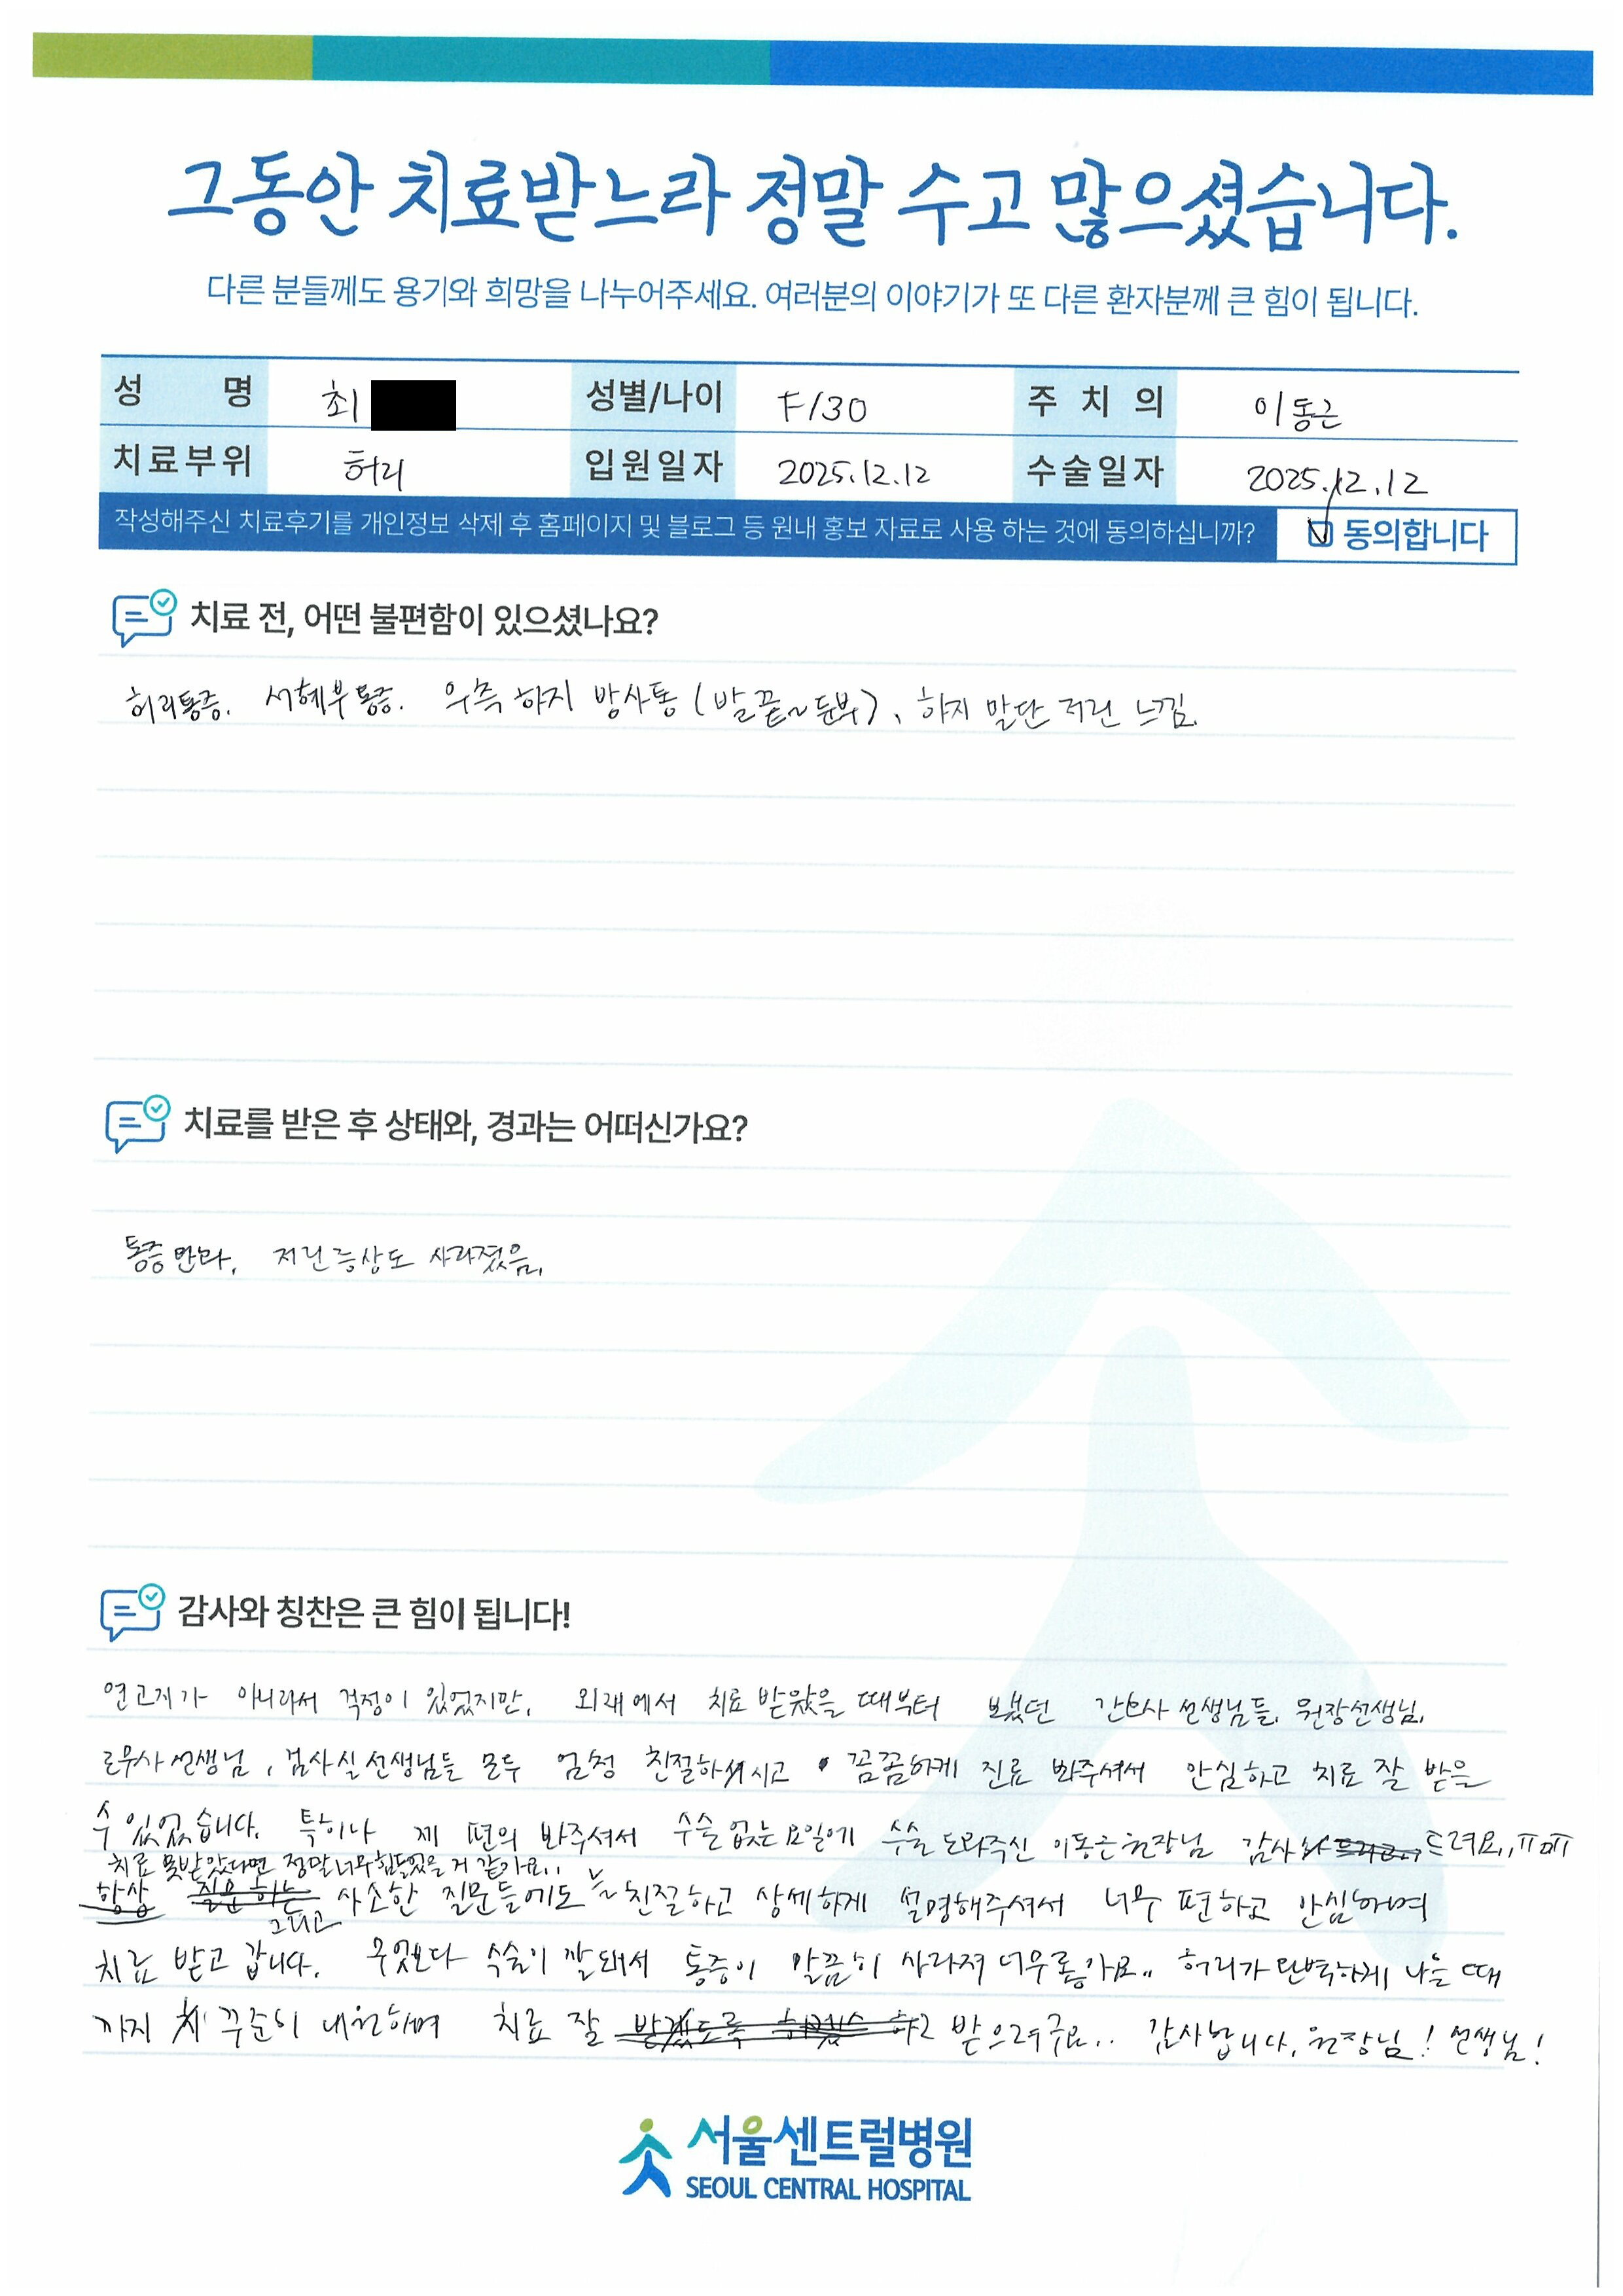 그동안 치료받느라 정말 수고 많으셨습니다.
다른 분들께도 용기와 희망을 나누어주세요. 여러분의 이야기가 또 다른 환자분께 큰 힘이 됩니다.
성 명 최 성별/나이 F/30 주 치 의 이동근
치료부위 허리 입원일자 2025.12.12 수술일자 2025.12.12
작성해주신 치료후기를 개인정보 삭제 후 홈페이지 및 블로그 등 원내 홍보 자료로 사용 하는 것에 동의하십니까? 동의합니다
치료 전, 어떤 불편함이 있으셨나요?
허리통증. 서혜부통증. 우측 하지 방사통 (발끝~둔부), 하지 말단 저린 느낌.
치료를 받은 후 상태와, 경과는 어떠신가요?
통증 완화, 저린 증상도 사라졌음.
감사와 칭찬은 큰 힘이 됩니다!
연고지가 아니라서 걱정이 있었지만, 외래에서 치료 받았을 때부터 뵀던 간호사 선생님들, 원장선생님,
선생님, 검사실 선생님들 모두 엄청 친절하셔시고 꼼꼼하게 진료 봐주셔서 안심하고 치료 잘 받을
수 있었습니다. 특히나 제 편의 봐주셔서 수술 없는 요일에 수술 도와주신 이동근 원장님 감사 드려요,, ㅠㅠ
치료 못받았다면 정말 너무 힘들었을 거 같아요..
항상 사소한 질문들에도 친절하고 상세하게 설명해주셔서 너무 편하고 안심하여
치료 받고 갑니다. 그리고 무엇보다 수술이 잘돼서 통증이 말끔히 사라져 너무 허리가 완벽하게 나을 때
까지 꾸준히 내원하며 치료 잘 받으려구요.. 감사합니다, 원장님! 선생님!
서울센트럴병원
SEOUL CENTRAL HOSPITAL